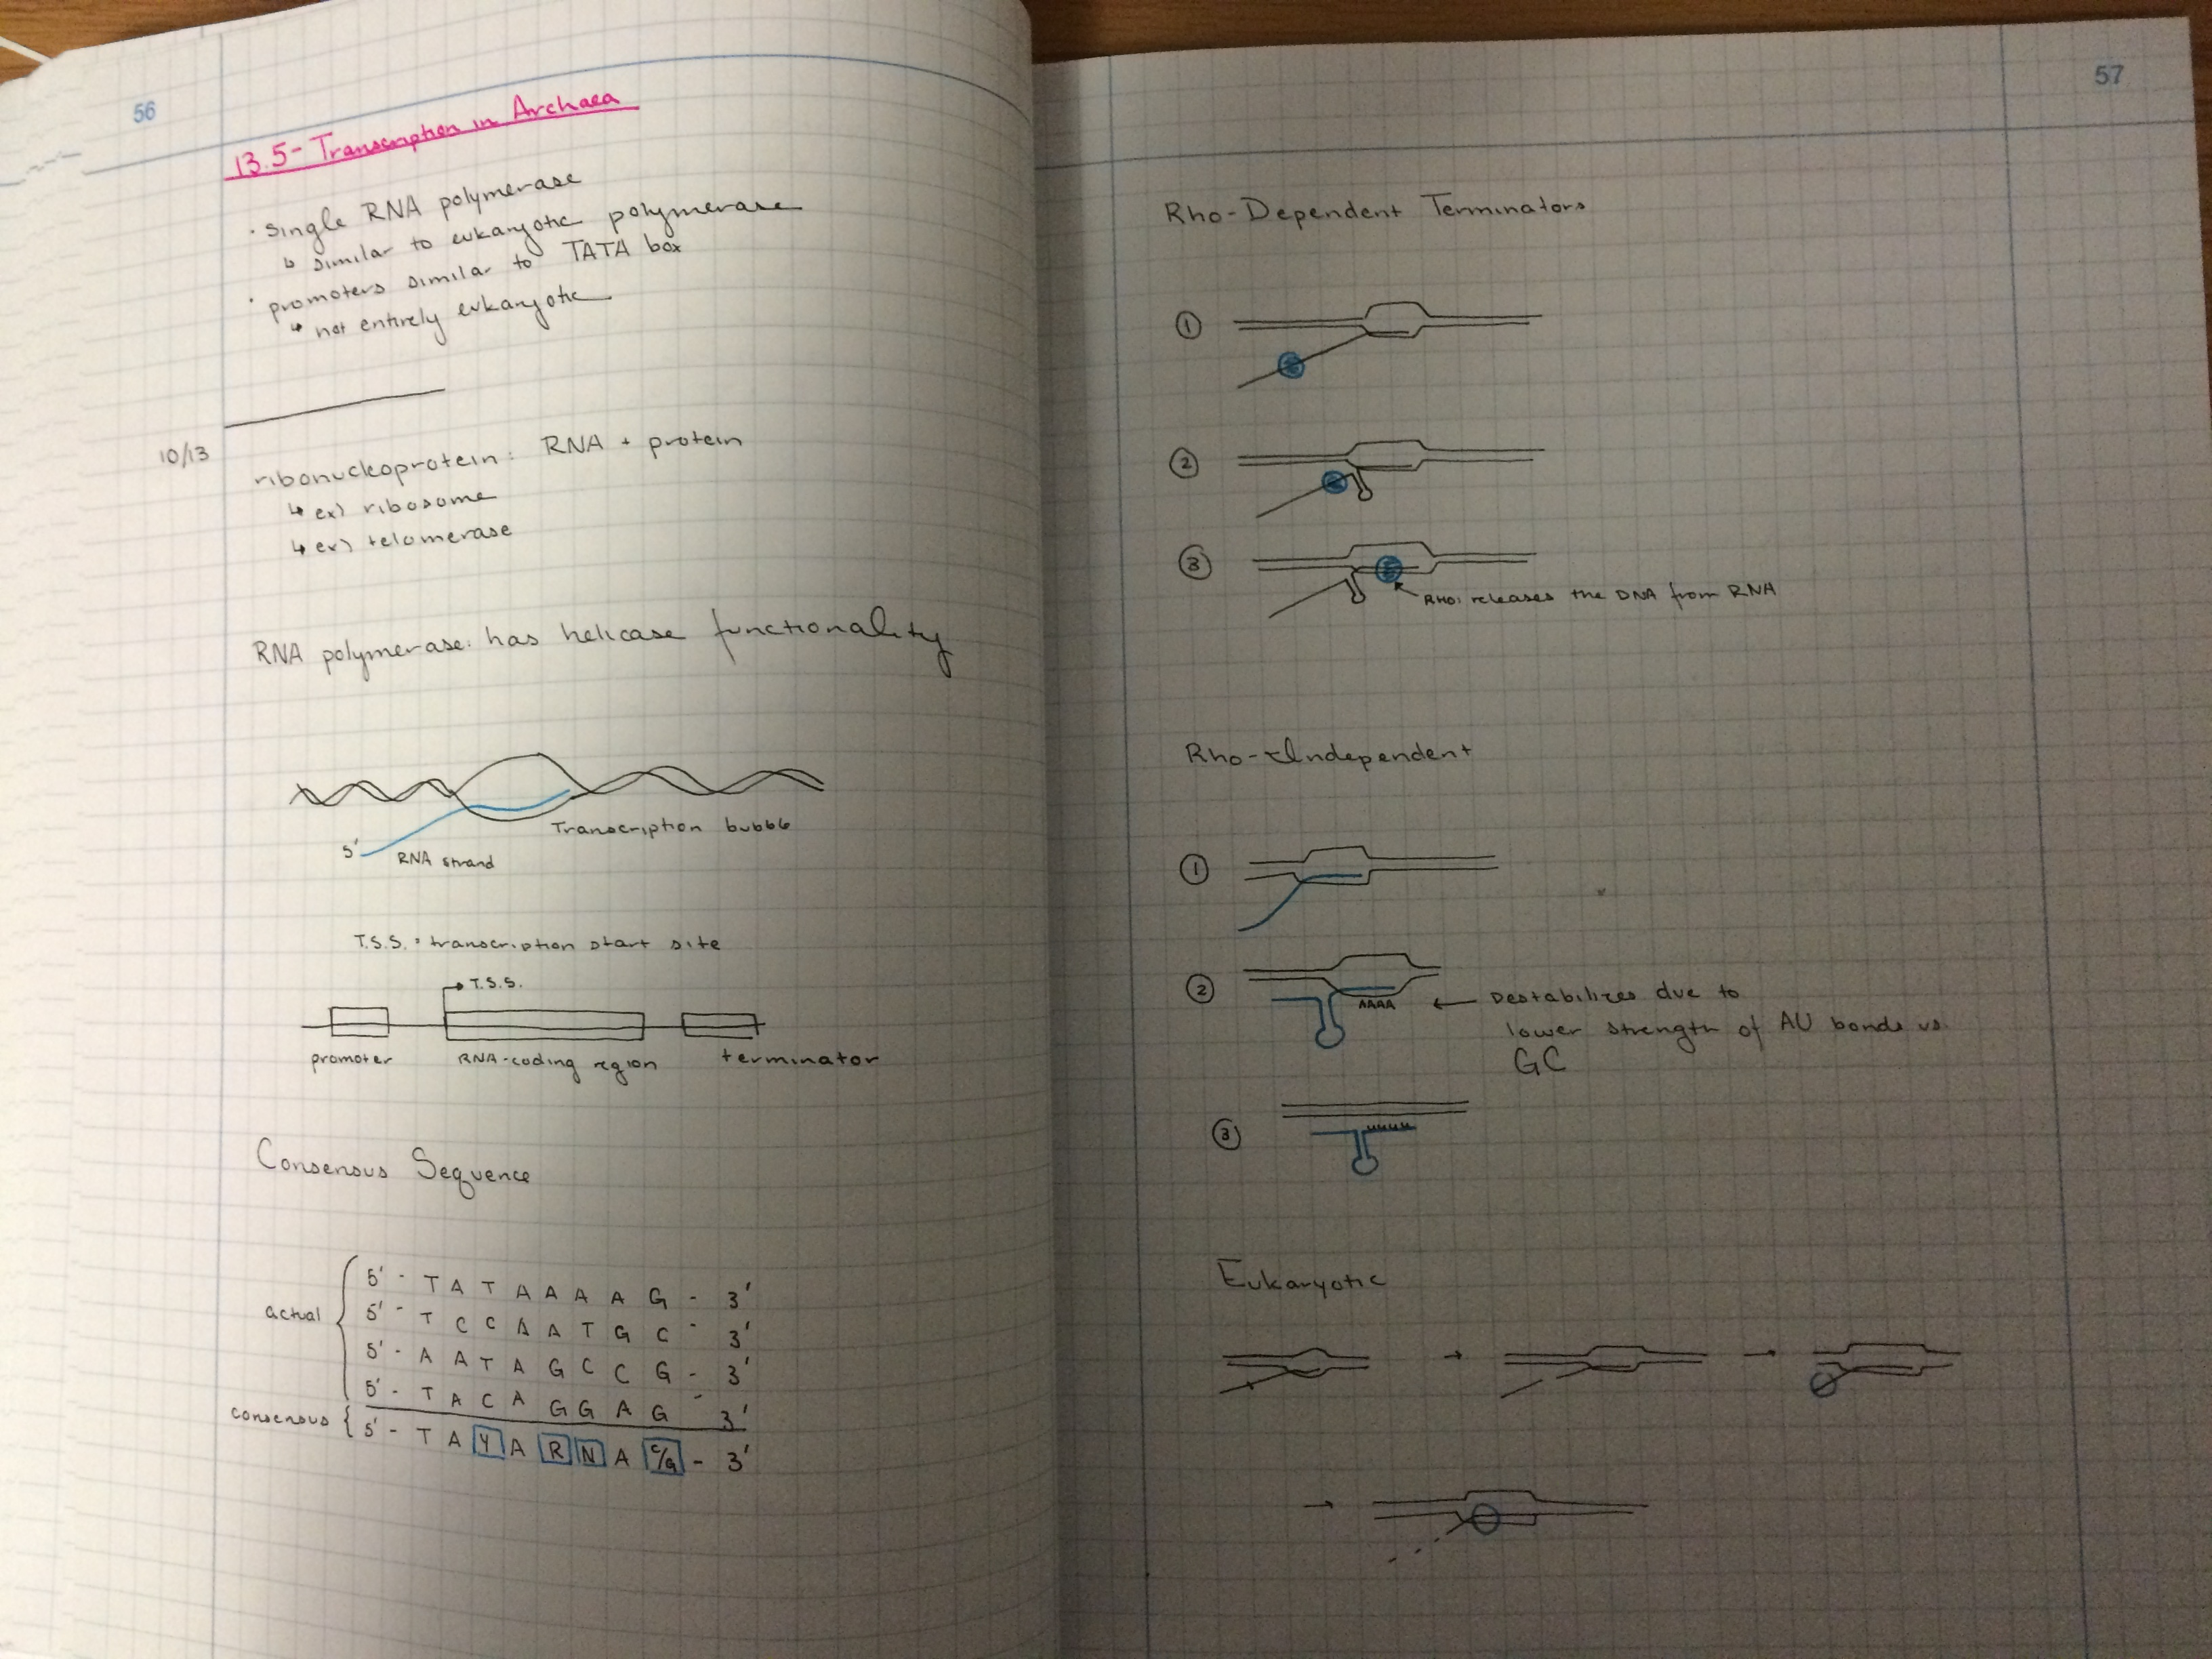 56
13.5 - Transcription in Archaea
· single RNA polymerase
↳ similar to eukaryotic polymerase
· promoters similar to TATA box
↳ not entirely eukaryotic
10/13
ribonucleoprotein: RNA + protein
↳ ex) ribosome
↳ ex) telomerase
RNA polymerase: has helicase functionality
Transcription bubble
5'
RNA strand
T.S.S. = transcription start site
T.S.S.
promoter RNA-coding region terminator
Consensus Sequence
actual
5' - T A T A A A A G - 3'
5' - T C C A A T G C - 3'
5' - A A T A G C C G - 3'
5' - T A C A G G A G - 3'
consensus { 5' - T A Y A R N A C/G - 3'
57
Rho-Dependent Terminators
①
②
③
RHO: releases the DNA from RNA
Rho-Independent
①
②
AAAA
← Destabilizes due to
lower strength of AU bonds vs.
GC
③
Eukaryotic
→ →
→